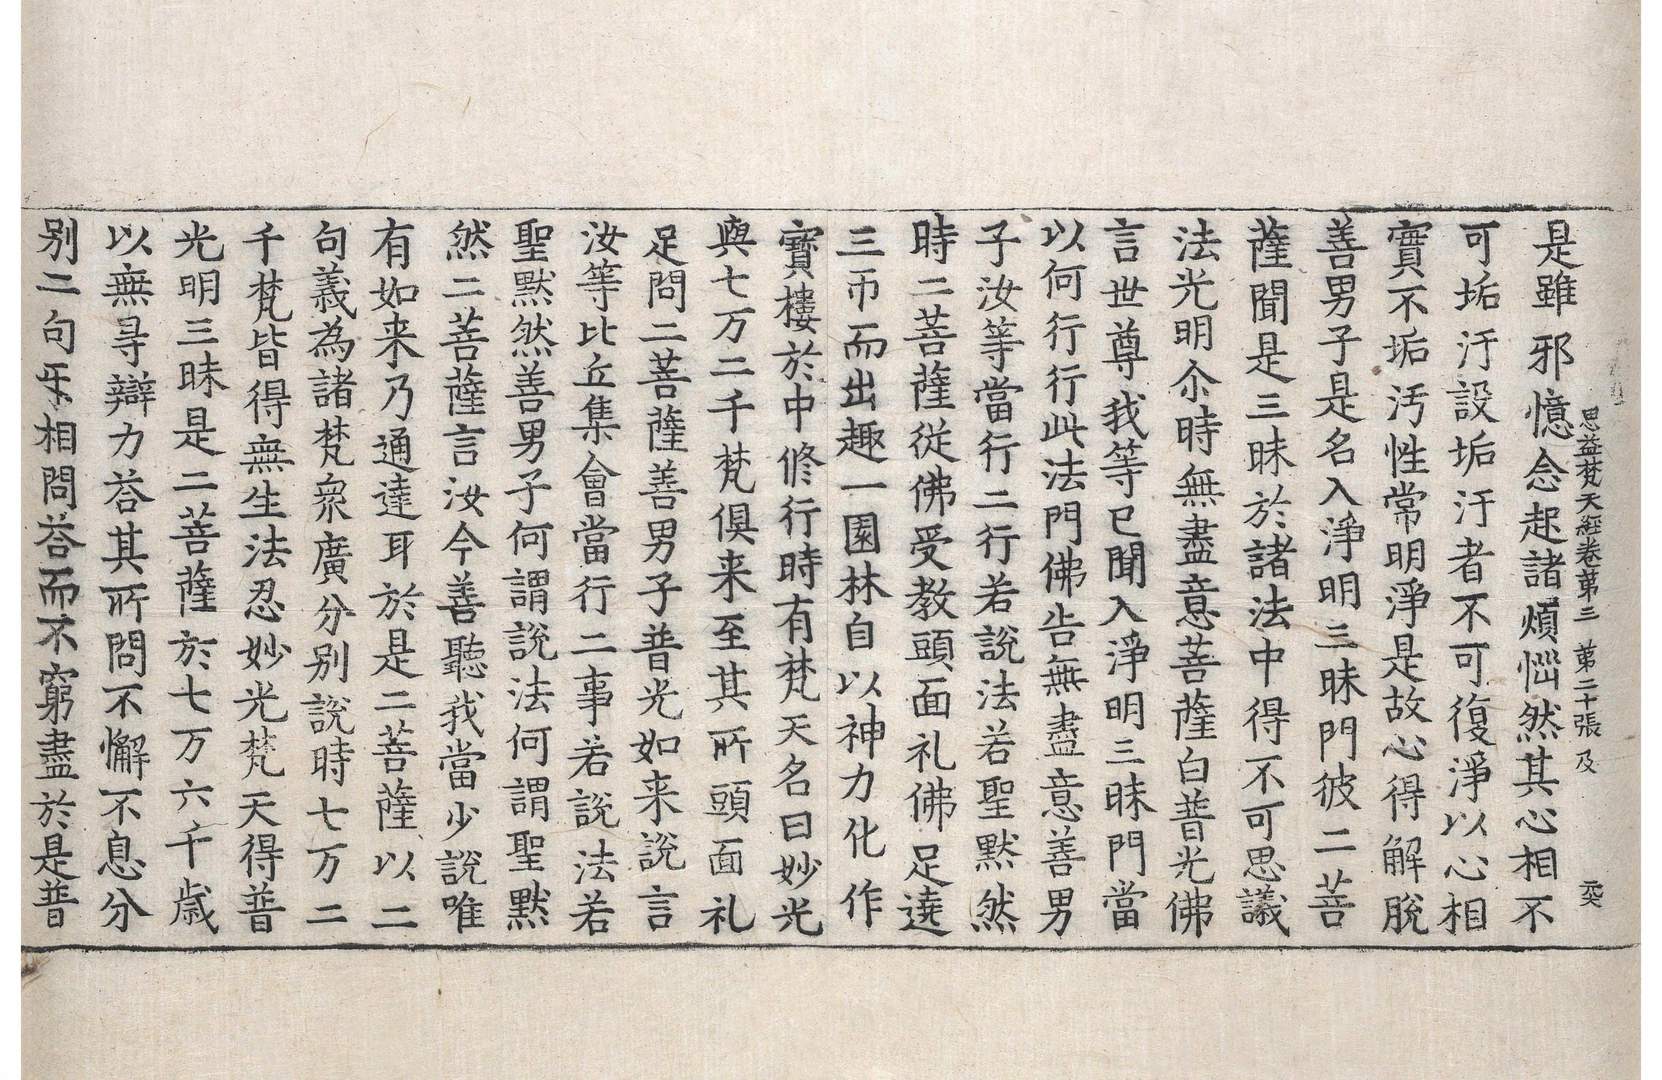 思益梵天經卷第三 第二十張 及 𡘜
是雖邪憶念起諸煩惱然其心相不
可垢汙設垢汙者不可復淨以心相
實不垢汚性常明淨是故心得解脫
善男子是名入淨明三昧門彼二菩
薩聞是三昧於諸法中得不可思議
法光明尒時無盡意菩薩白普光佛
言世尊我等已聞入淨明三昧門當
以何行行此法門佛告無盡意善男
子汝等當行二行若說法若聖默然
時二菩薩從佛受教頭面礼佛足遶
三帀而出趣一園林自以神力化作
寶樓於中修行時有梵天名曰妙光
與七万二千梵俱来至其所頭面礼
足問二菩薩善男子普光如来說言
汝等比丘集會當行二事若說法若
聖默然善男子何謂說法何謂聖默
然二菩薩言汝今善聽我當少說唯
有如来乃通達耳於是二菩薩以二
句義為諸梵衆廣分別說時七万二
千梵皆得無生法忍妙光梵天得普
光明三昧是二菩薩於七万六千歲
以無㝵辯力荅其所問不懈不息分
別二句㸦相問荅而不窮盡於是普